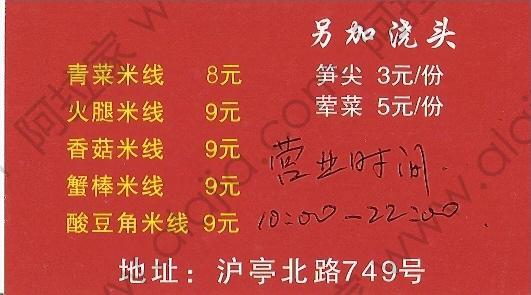 另加浇头
青菜米线 8元
笋尖 3元/份
火腿米线 9元
荤菜 5元/份
香菇米线 9元
蟹棒米线 9元
酸豆角米线 9元
营业时间
10:00-22:00
地址：沪亭北路749号